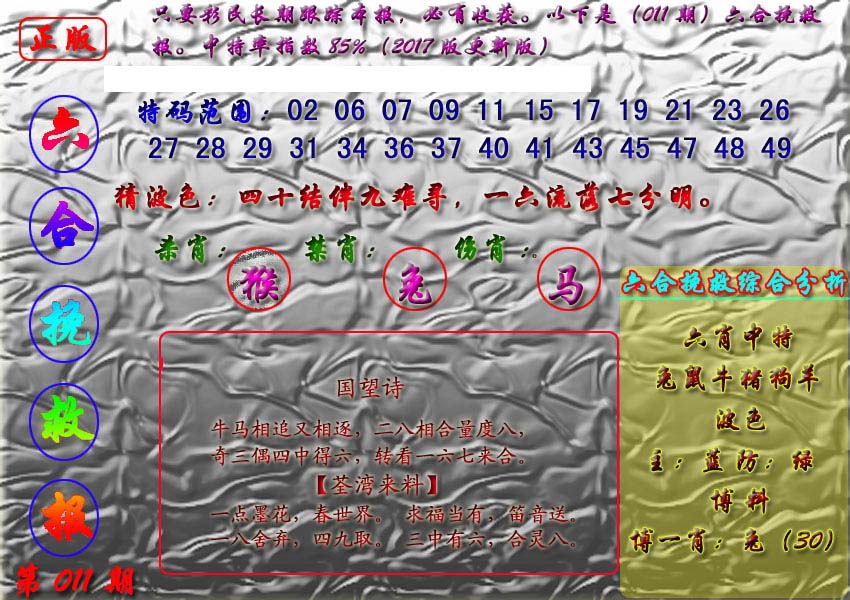 正版
只要彩民长期跟踪本报，必有收获。以下是（011期）六合挽救
报。中特率指数85%（2017版更新版）
六
合
挽
救
报
第011期
特码范围：02 06 07 09 11 15 17 19 21 23 26
27 28 29 31 34 36 37 40 41 43 45 47 48 49
猜波色：四十结伴九难寻，一六流落七分明。
杀肖： 禁肖： 伤肖：。
猴 兔 马
国望诗
牛马相追又相逐，二八相合量度八，
奇三偶四中得六，转看一六七来合。
【荃湾来料】
一点墨花，春世界。 求福当有，笛音送。
一八舍弃，四九取。 三中有六，合灵八。
六合挽救综合分析
六肖中特
兔鼠牛猪狗羊
波色
主：蓝防：绿
博料
博一肖：兔（30）